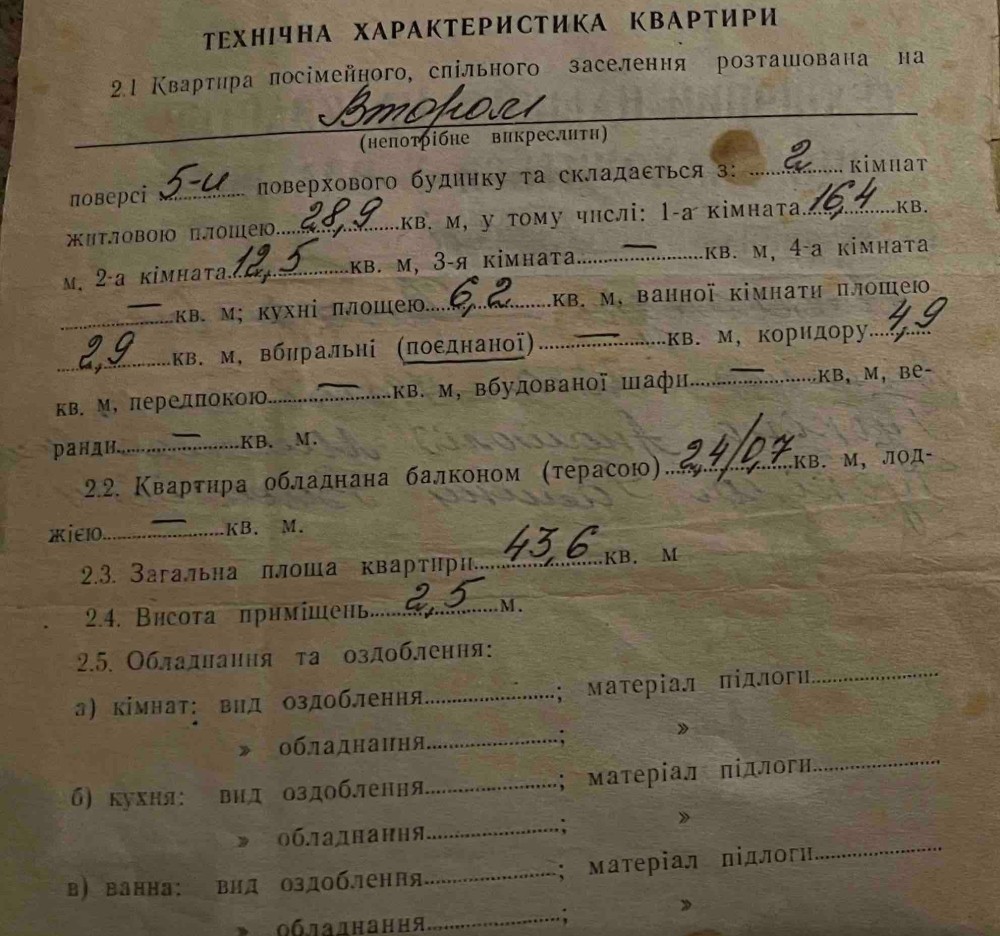 ТЕХНІЧНА ХАРАКТЕРИСТИКА КВАРТИРИ
2.1 Квартира посімейного, спільного заселення розташована на
Втором
(непотрібне викреслити)
поверсі 5-и поверхового будинку та складається з: 2 кімнат
житловою площею 28,9 кв. м, у тому числі: 1-а кімната 16,4 кв.
м, 2-а кімната 12,5 кв. м, 3-я кімната — кв. м, 4-а кімната
— кв. м; кухні площею 6,2 кв. м, ванної кімнати площею
2,9 кв. м, вбиральні (поєднаної) — кв. м, коридору 4,9
кв. м, передпокою — кв. м, вбудованої шафи — кв, м, ве-
ранди — кв. м.
2.2. Квартира обладнана балконом (терасою) 2,4/0,7 кв. м, лод-
жією — кв. м.
2.3. Загальна площа квартири 43,6 кв. м
2.4. Висота приміщень 2,5 м.
2.5. Обладнання та оздоблення:
а) кімнат: вид оздоблення ; матеріал підлоги
» обладнання ; »
б) кухня: вид оздоблення ; матеріал підлоги
» обладнання ; »
в) ванна: вид оздоблення ; матеріал підлоги
» обладнання ; »